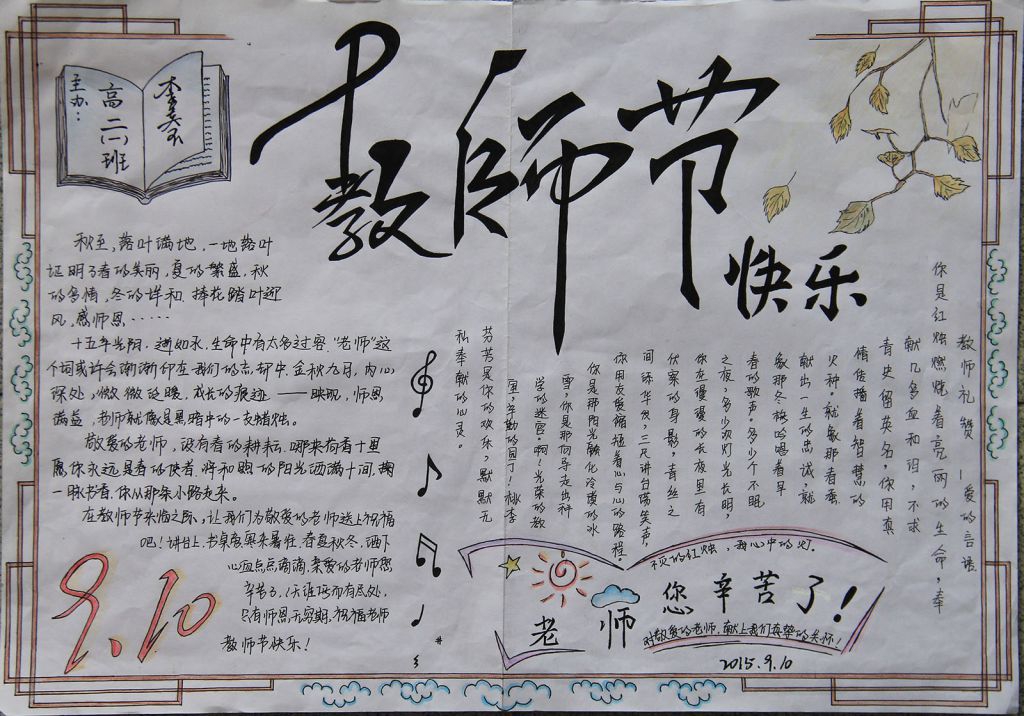 教师节
快乐
主办：
高二(一)班
秋至，落叶满地，一地落叶
证明了春的美丽，夏的繁盛，秋
的多情，冬的祥和。捧花踏叶迎
风，感师恩……
十五年光阴，逝如水，生命中有太多过客，“老师”这
个词或许会渐渐印在我们的志却中。金秋九月，内心
深处，微微泛暖，成长的痕迹——映现，师恩
满益，老师就像是黑暗中的一支蜡烛。
敬爱的老师，没有春的耕耘，哪来荷香十里
愿你永远是春的使者，将和煦的阳光洒满十间，掬
一脉书香，你从那条小路走来。
在教师节来临之际，让我们为敬爱的老师送上祝福
吧！讲台上，书桌旁，寒来暑往，春夏秋冬，洒下
心血点点滴滴，亲爱的老师您
辛苦了，
只有师恩无穷期，祝福老师
教师节快乐！
9.10
教师礼赞——爱的言语
你是红烛燃烧着亮丽的生命，奉
献几多血和泪，不求
青史留英名，你用真
情传播着智慧的
火种。就像那春蚕
献出一生的忠诚，就
象那冬梅吟唱着早
春的歌声。多少个不眠
之夜，多少次灯光长明，
你在漫漫的长夜里有
伏案的身影，青丝之
间添华发，三尺讲台荡笑声。
你用友爱缩植着心与心的路程。
你是那阳光融化冷漠的冰
雪，你是那向导走出科
学的迷宫。啊！光荣的教
师，辛勤的园丁！桃李
芬芳是你的欢乐，默默无
私奉献的心灵。
心中的灯。
老师
您辛苦了！
对敬爱的老师，献上我们真挚的关怀！
2015.9.10